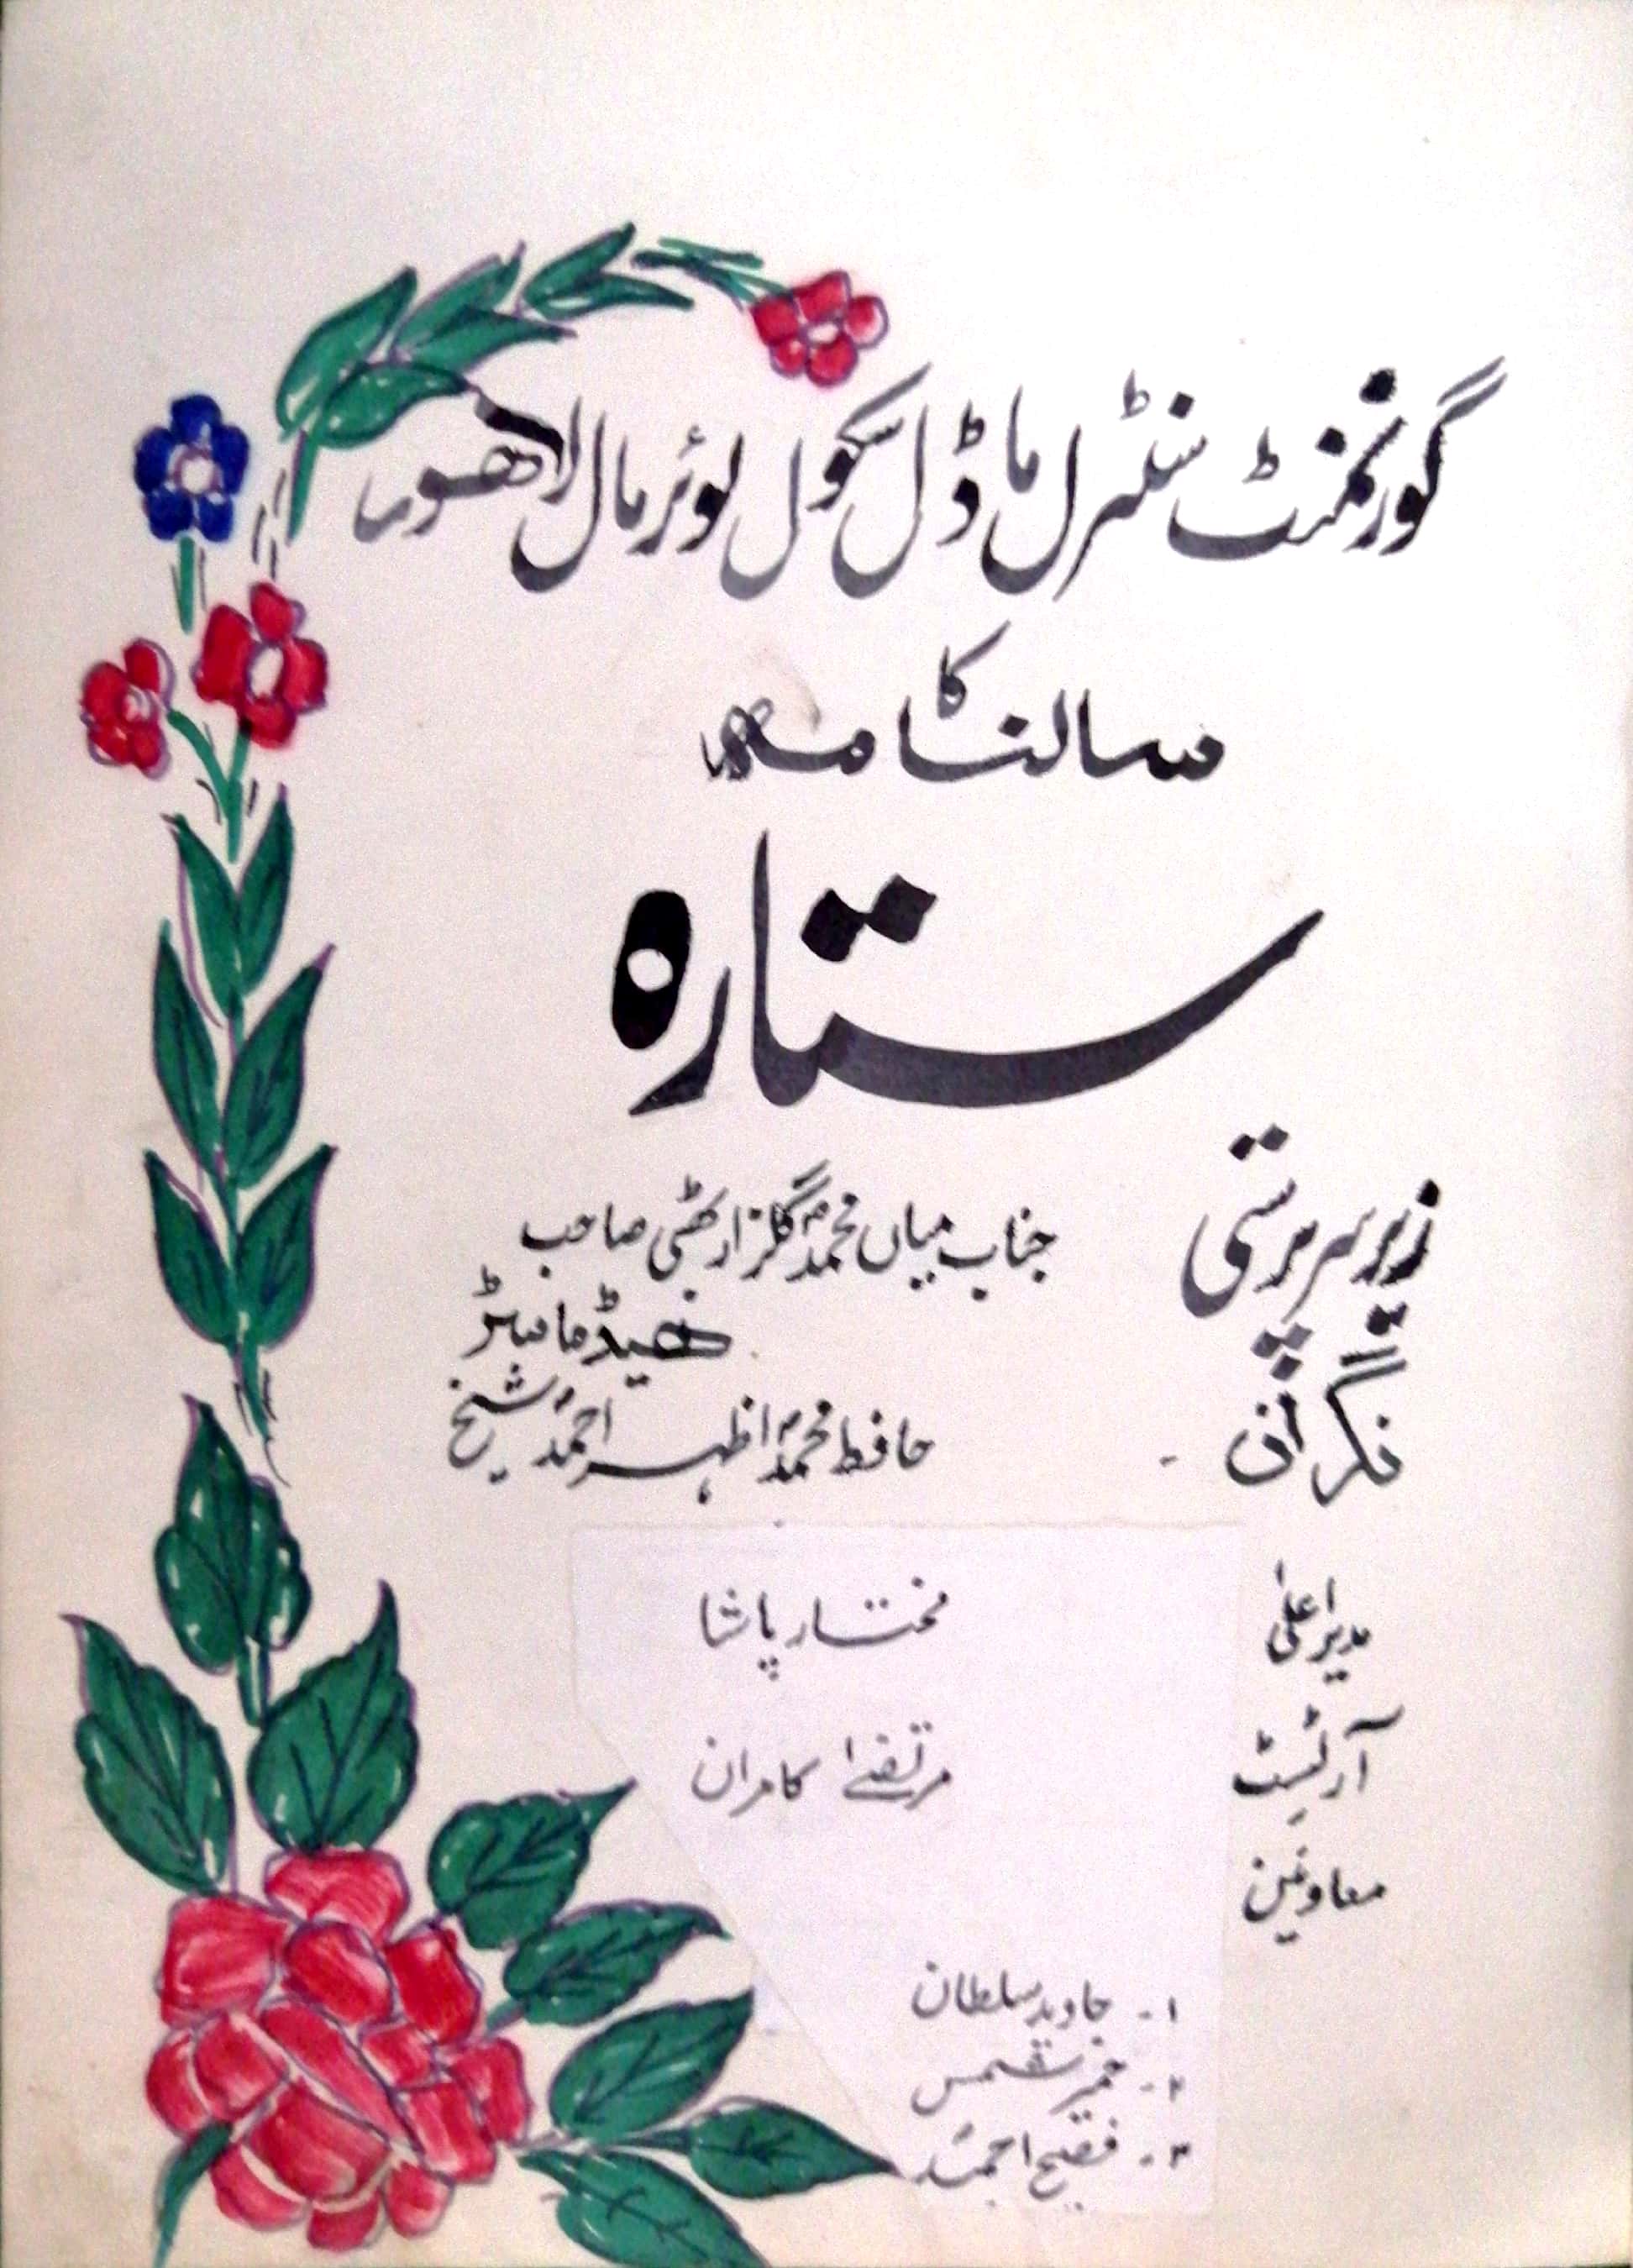 گورنمنٹ سنٹرل ماڈل سکول لوئر مال لاھور
کا
سالنامہ
ستارہ
زیر سرپرستی جناب میاں محمد گلزار بھٹی صاحب
ھیڈ ماسٹر
نگرانی حافظ محمد اظہر احمد شیخ
مدیر اعلیٰ مختار پاشا
آرٹسٹ مرتضےٰ کامران
معاونین
۱- جاوید سلطان
۲- شمس
۳- فصیح احمد